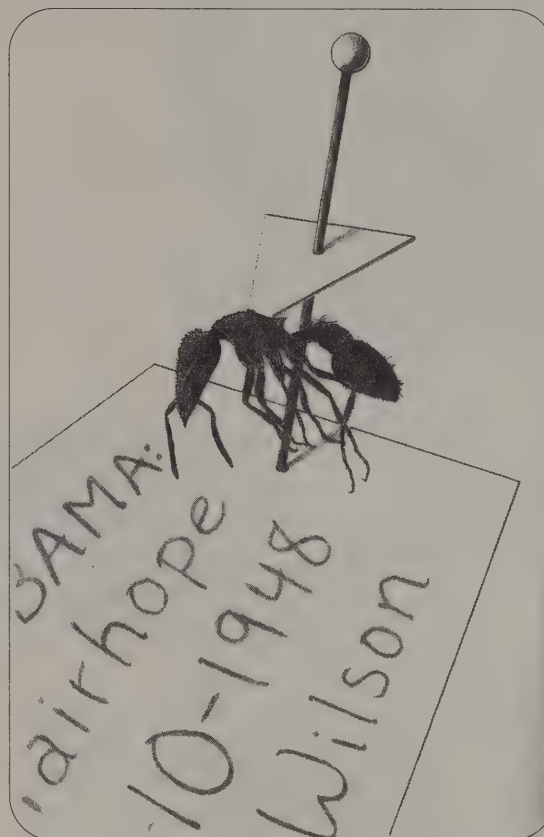 BAMA:
airhope
10-1948
Wilson